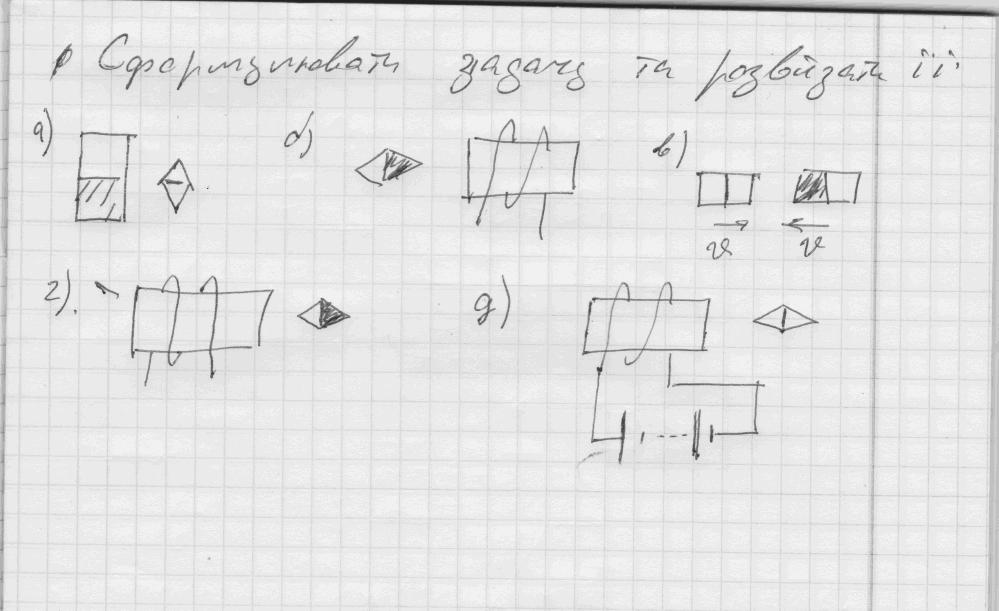 Сформулювати задачу та розвйзати її.
а)
б)
в)
v v
г).
д)